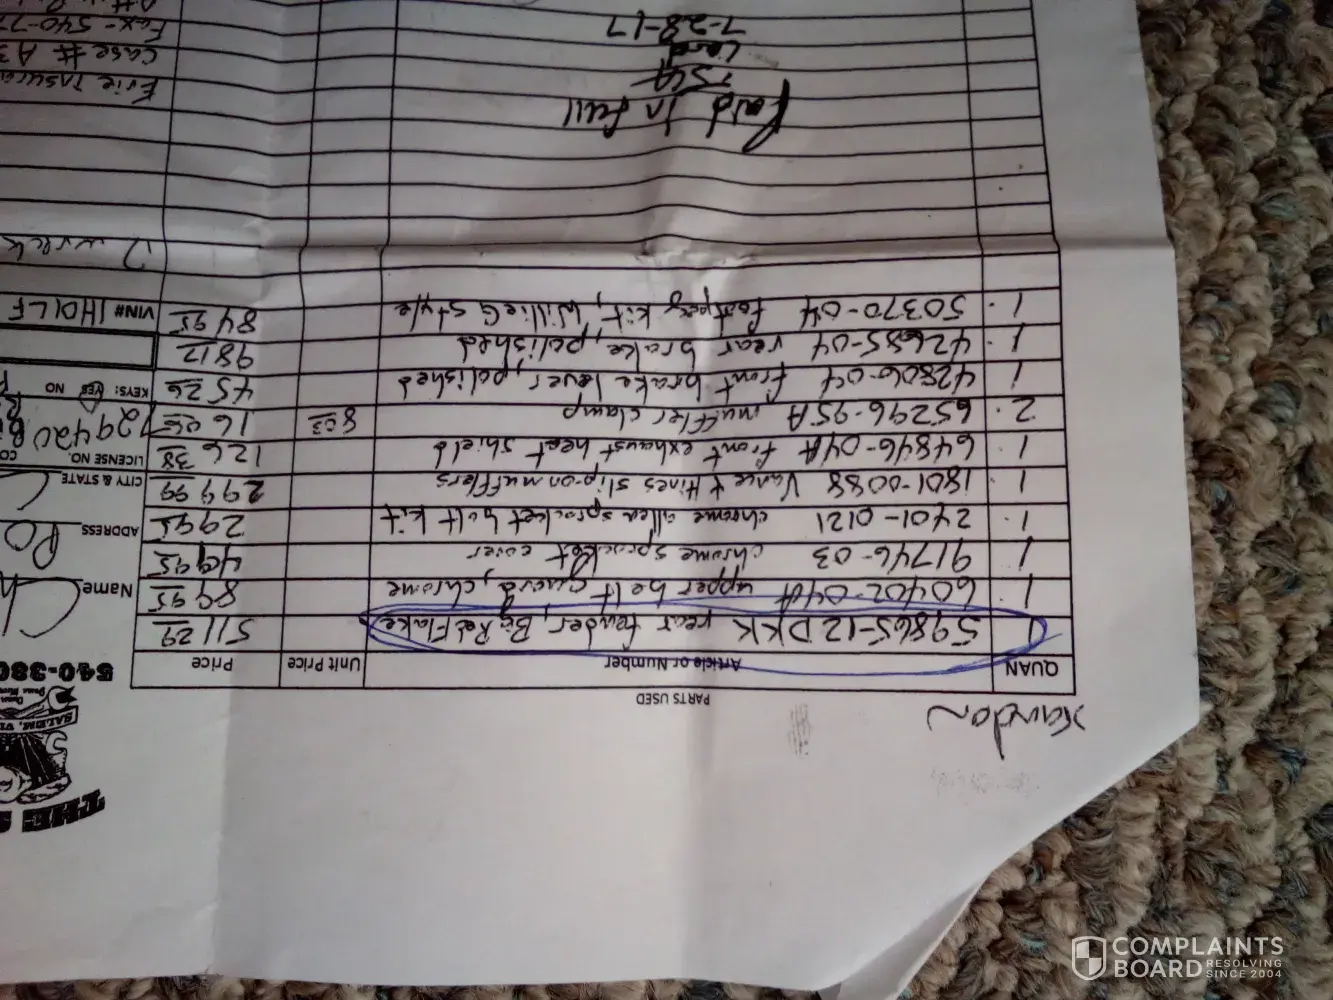 Xavdon
PARTS USED
QUAN Article or Number Unit Price Price
1 59865-12DKK rear fender, Big Red Flake 511 29
1 60402-04A upper belt guard, chrome 89 95
1 91746-03 chrome sprocket cover 49 95
1 2401-0121 chrome allen sprocket bolt kit 29 95
1 1801-0088 Vance & Hines slip-on mufflers 299 99
1 64846-04A front exhaust heat shield 126 38
2 65296-95A muffler clamp 803 16 06
1 42806-04 front brake lever, polished 45 26
1 42685-04 rear brake, polished 98 17
1 50370-04 footpeg kit, Willie G style 84 95
Paid In full
Card
7-28-17
THE
SALEM, VI
540-380
Name Ch
ADDRESS PO
CITY & STATE C
LICENSE NO. CO
729420
KEYS: YES NO
VIN# 1HD1LF
wreck
Erie Insura
Case # A3
Fax - 540-77
COMPLAINTS
BOARD RESOLVING
SINCE 2004